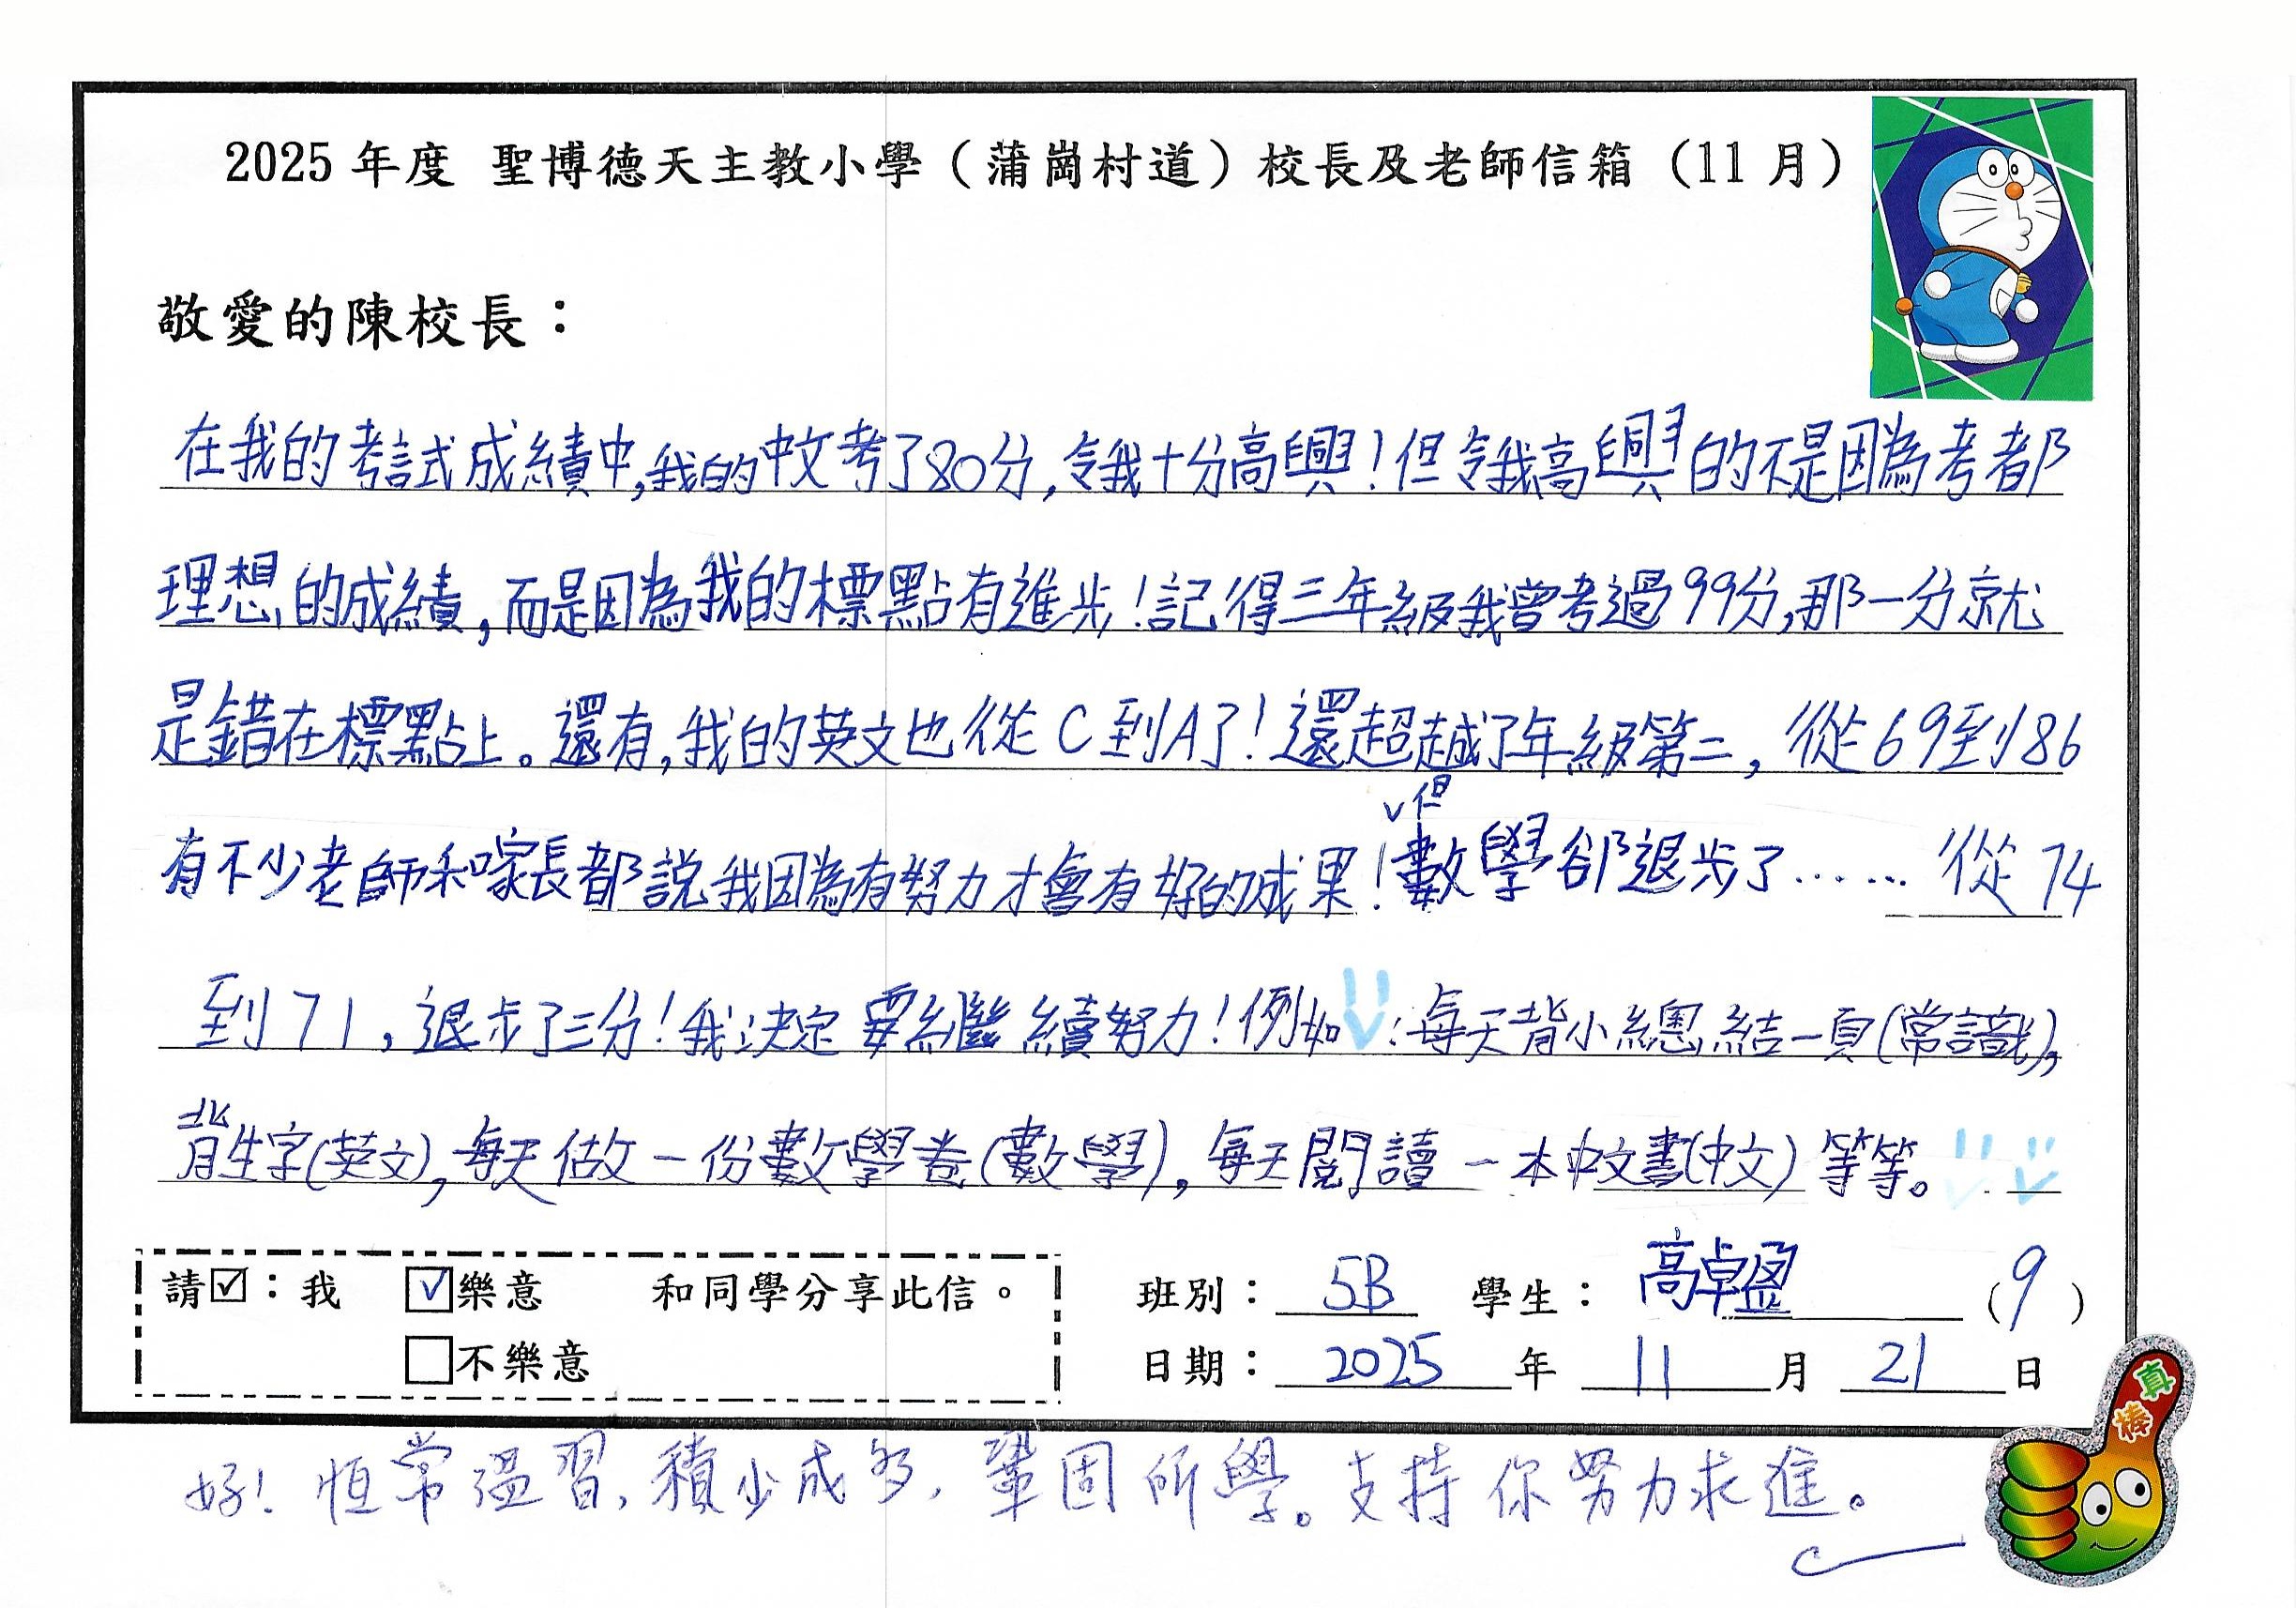 2025 年度 聖博德天主教小學（蒲崗村道）校長及老師信箱（11 月）
敬愛的陳校長：
在我的考試成績中,我的中文考了80分,令我十分高興!但令我高興的不是因為考都
理想的成績,而是因為我的標點有進步!記得三年級我曾考過99分,那一分就
是錯在標點上。還有,我的英文也從C到A了!還超越了年級第二,從69到86
有不少老師和家長都說我因為有努力才會有好的成果!但數學卻退步了……從74
到71,退步了三分!我決定要繼續努力!例如:每天背小總結一頁(常識),
背生字(英文),每天做一份數學卷(數學),每天閱讀一本中文書(中文)等等。
請☑：我 ☑樂意 和同學分享此信。
□不樂意
班別：5B 學生：高卓盈 (9)
日期：2025年11月21日
好!恒常溫習,積少成多,鞏固所學。支持你努力求進。
真棒